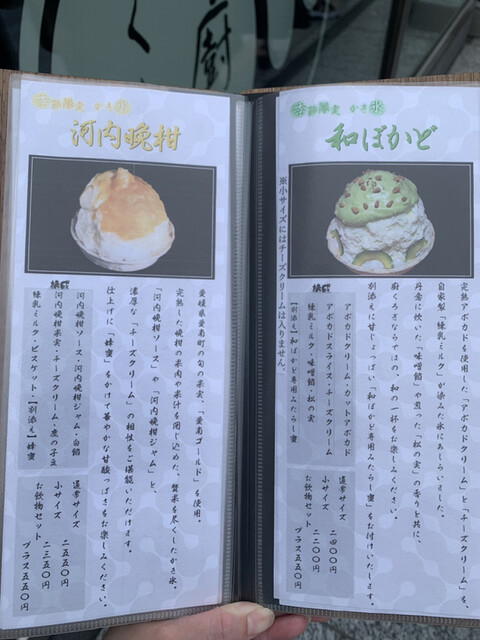 季節限定 かき氷
和ぼかど
完熟アボカドを使用した「アボカドクリーム」と「チーズクリーム」を、
自家製「練乳ミルク」が染みた氷にあしらいました。
丹念に炊いた「味噌餡」や煎った「松の実」の香りと共に、
廚くろぎならではの、和の一杯をお楽しみください。
別添えに甘じょっぱい「和ぼかど専用みたらし蜜」をお付けいたします。
構成
アボカドクリーム・カットアボカド
アボカドスライス・チーズクリーム
練乳ミルク・味噌餡・松の実
【別添え】和ぼかど専用みたらし蜜
通常サイズ 二四〇〇円
小サイズ 二二〇〇円
お飲物セット プラス五五〇円
※小サイズにはチーズクリームは入りません。
季節限定 かき氷
河内晩柑
愛媛県愛南町の旬の果実、「愛南ゴールド」を使用。
完熟した晩柑の果肉や果汁を閉じ込めた、贅を尽くしたかき氷。
「河内晩柑ソース」や「河内晩柑ジャム」と、
濃厚な「チーズクリーム」の相性をご堪能いただけます。
仕上げに「蜂蜜」をかけて華やかな甘酸っぱさをお楽しみください。
構成
河内晩柑ソース・河内晩柑ジャム・白餡
河内晩柑果実・チーズクリーム・鹿の子豆
練乳ミルク・ビスケット・【別添え】蜂蜜
通常サイズ 二五五〇円
小サイズ 二三五〇円
お飲物セット プラス五五〇円